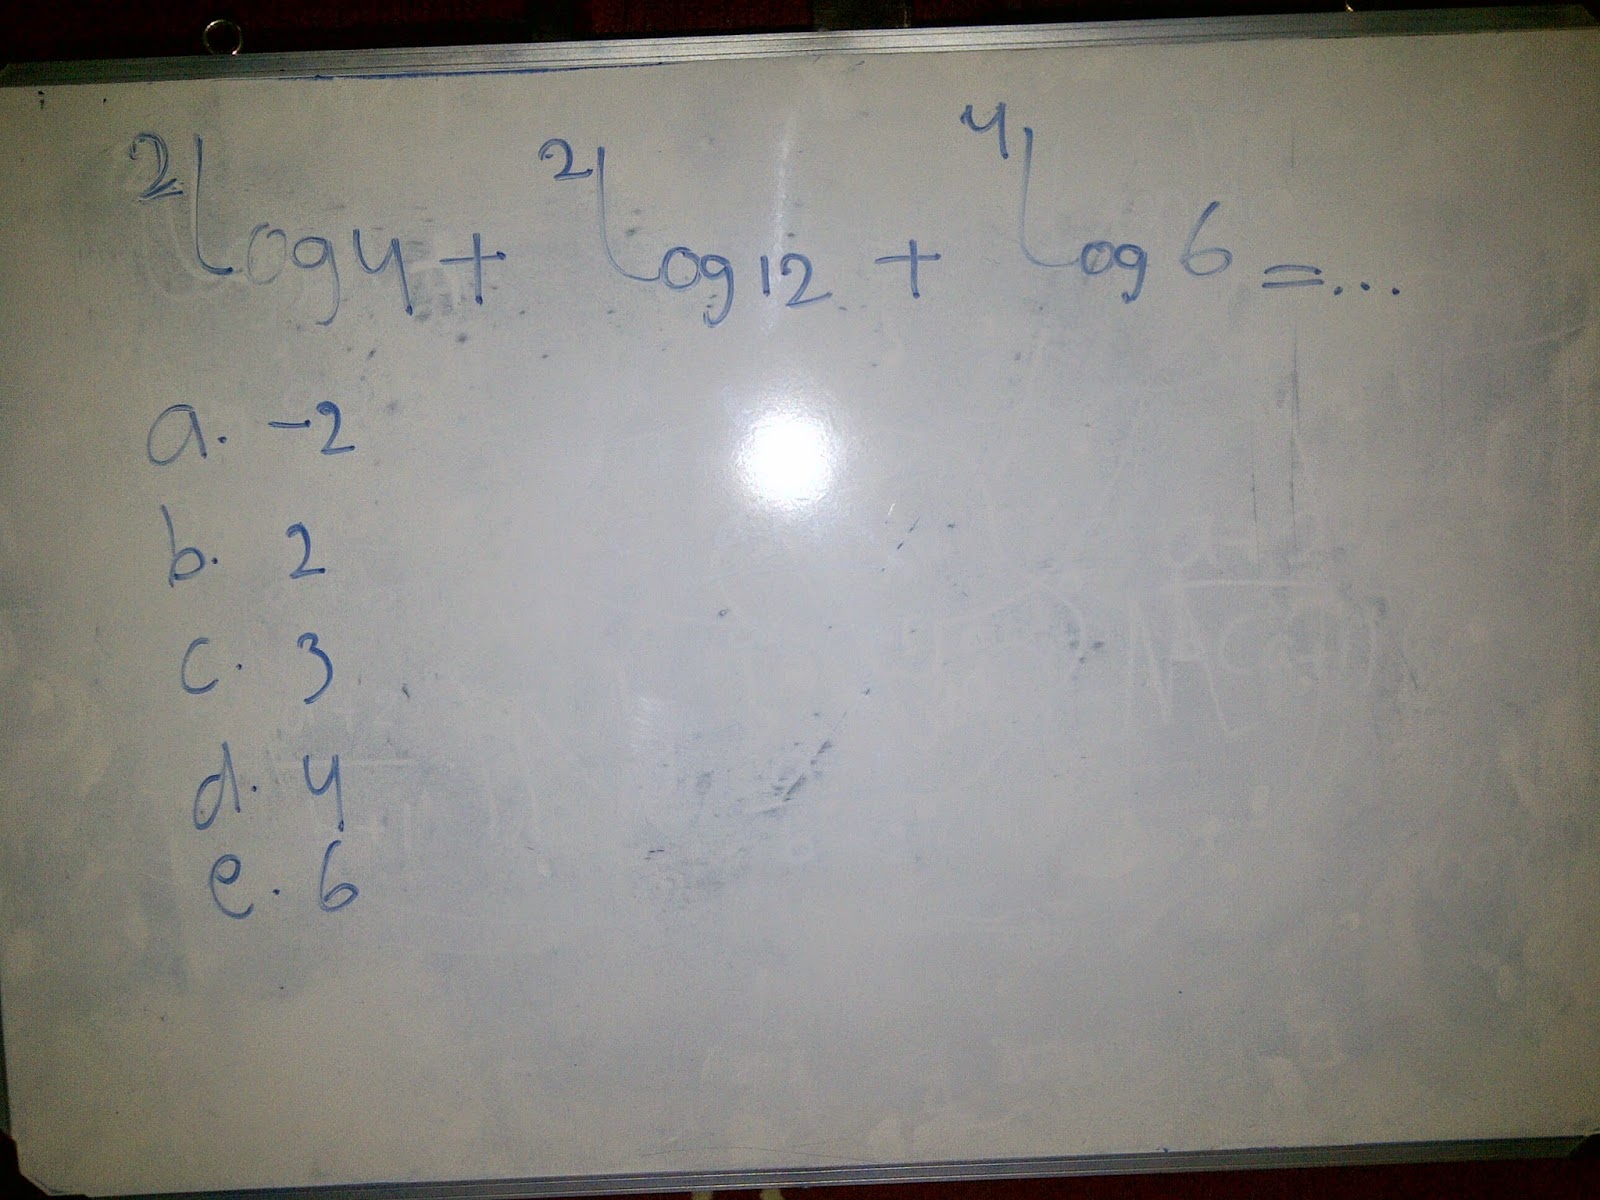 ²log 4 + ²log 12 + ⁴log 6 = ...
a. -2
b. 2
c. 3
d. 4
e. 6